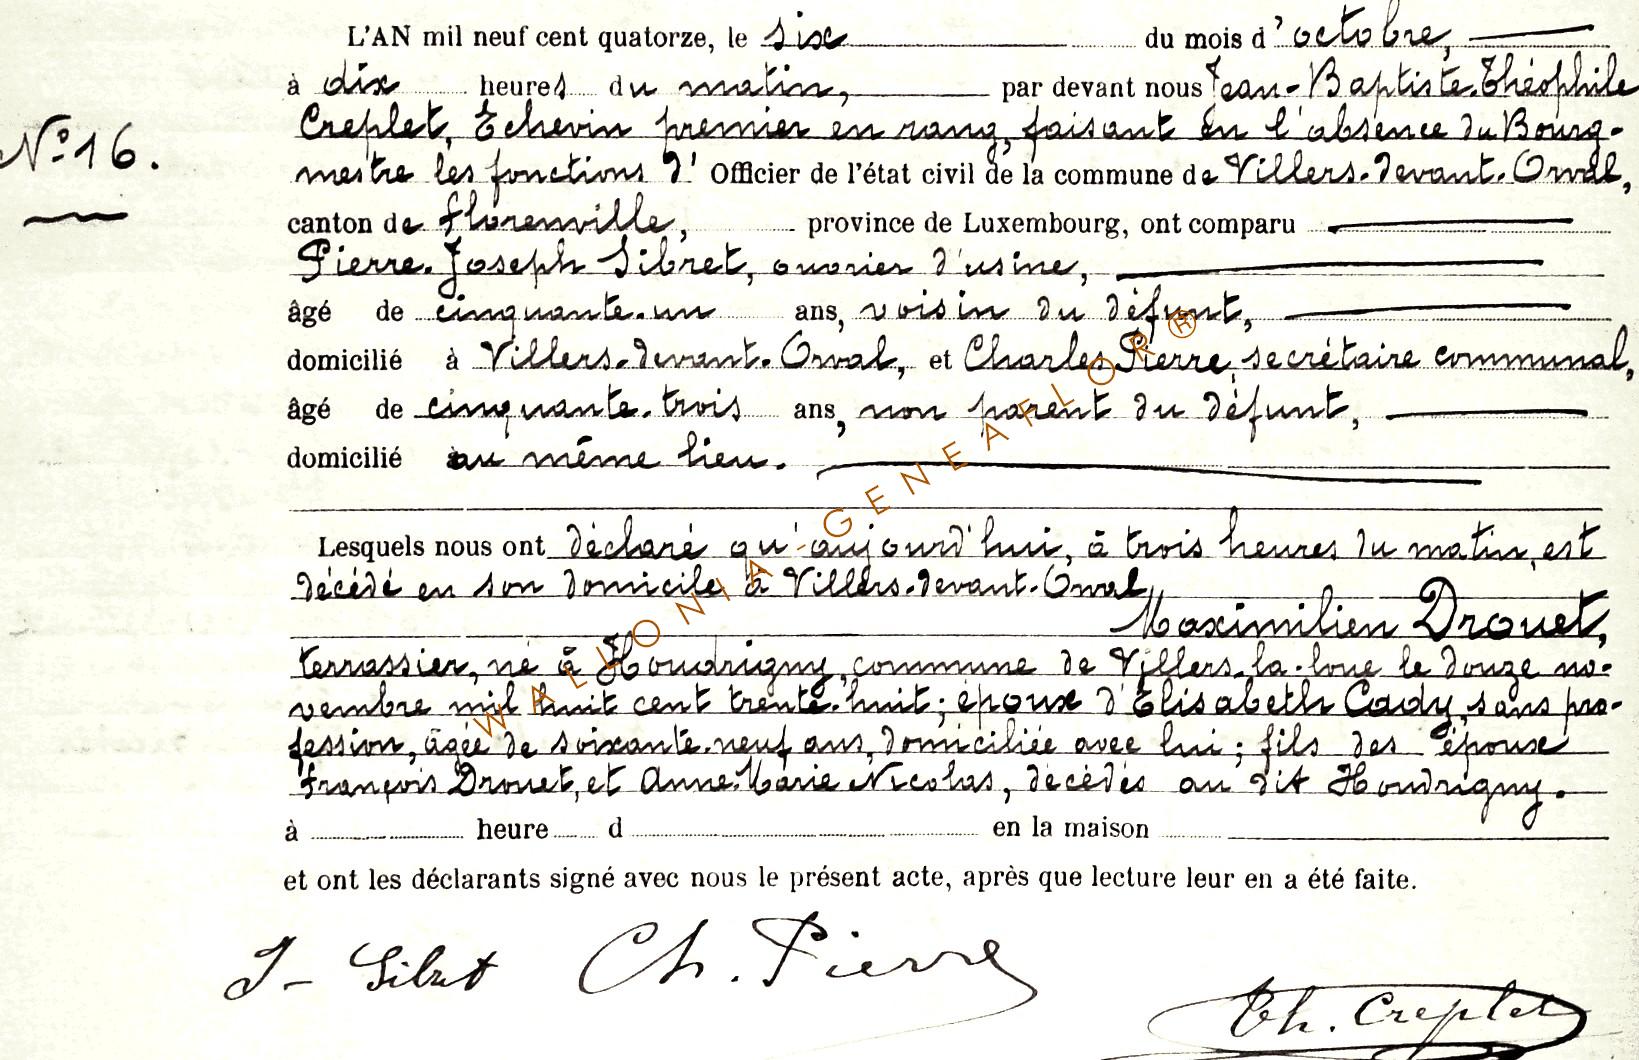 L'AN mil neuf cent quatorze, le six du mois d'octobre,
à dix heures du matin, par devant nous Jean-Baptiste-Théophile
Creplet, Echevin premier en rang, faisant en l'absence du Bourg-
N° 16.
mestre les fonctions d'Officier de l'état civil de la commune de Villers-devant-Orval,
canton de Florenville, province de Luxembourg, ont comparu
Pierre-Joseph Sibret, ouvrier d'usine,
âgé de cinquante-un ans, voisin du défunt,
domicilié à Villers-devant-Orval, et Charles Pierre, secrétaire communal,
âgé de cinquante-trois ans, non parent du défunt,
domicilié au même lieu.
Lesquels nous ont déclaré qu'aujourd'hui, à trois heures du matin, est
décédé en son domicile à Villers-devant-Orval,
Maximilien Drouet,
terrassier, né à Houdrigny, commune de Villers-la-loue le douze no-
vembre mil huit cent trente-huit; époux d'Elisabeth Cady, sans pro-
fession, âgée de soixante-neuf ans, domiciliée avec lui; fils des époux
François Drouet, et Anne-Marie Nicolas, décédés au dit Houdrigny.
à heure d en la maison
et ont les déclarants signé avec nous le présent acte, après que lecture leur en a été faite.
J - Sibret Ch. Pierre
Th. Creplet
WALLONIA-GENEAFLOR®